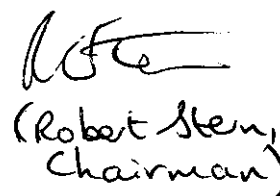 (Robert Stern,
Chairman)